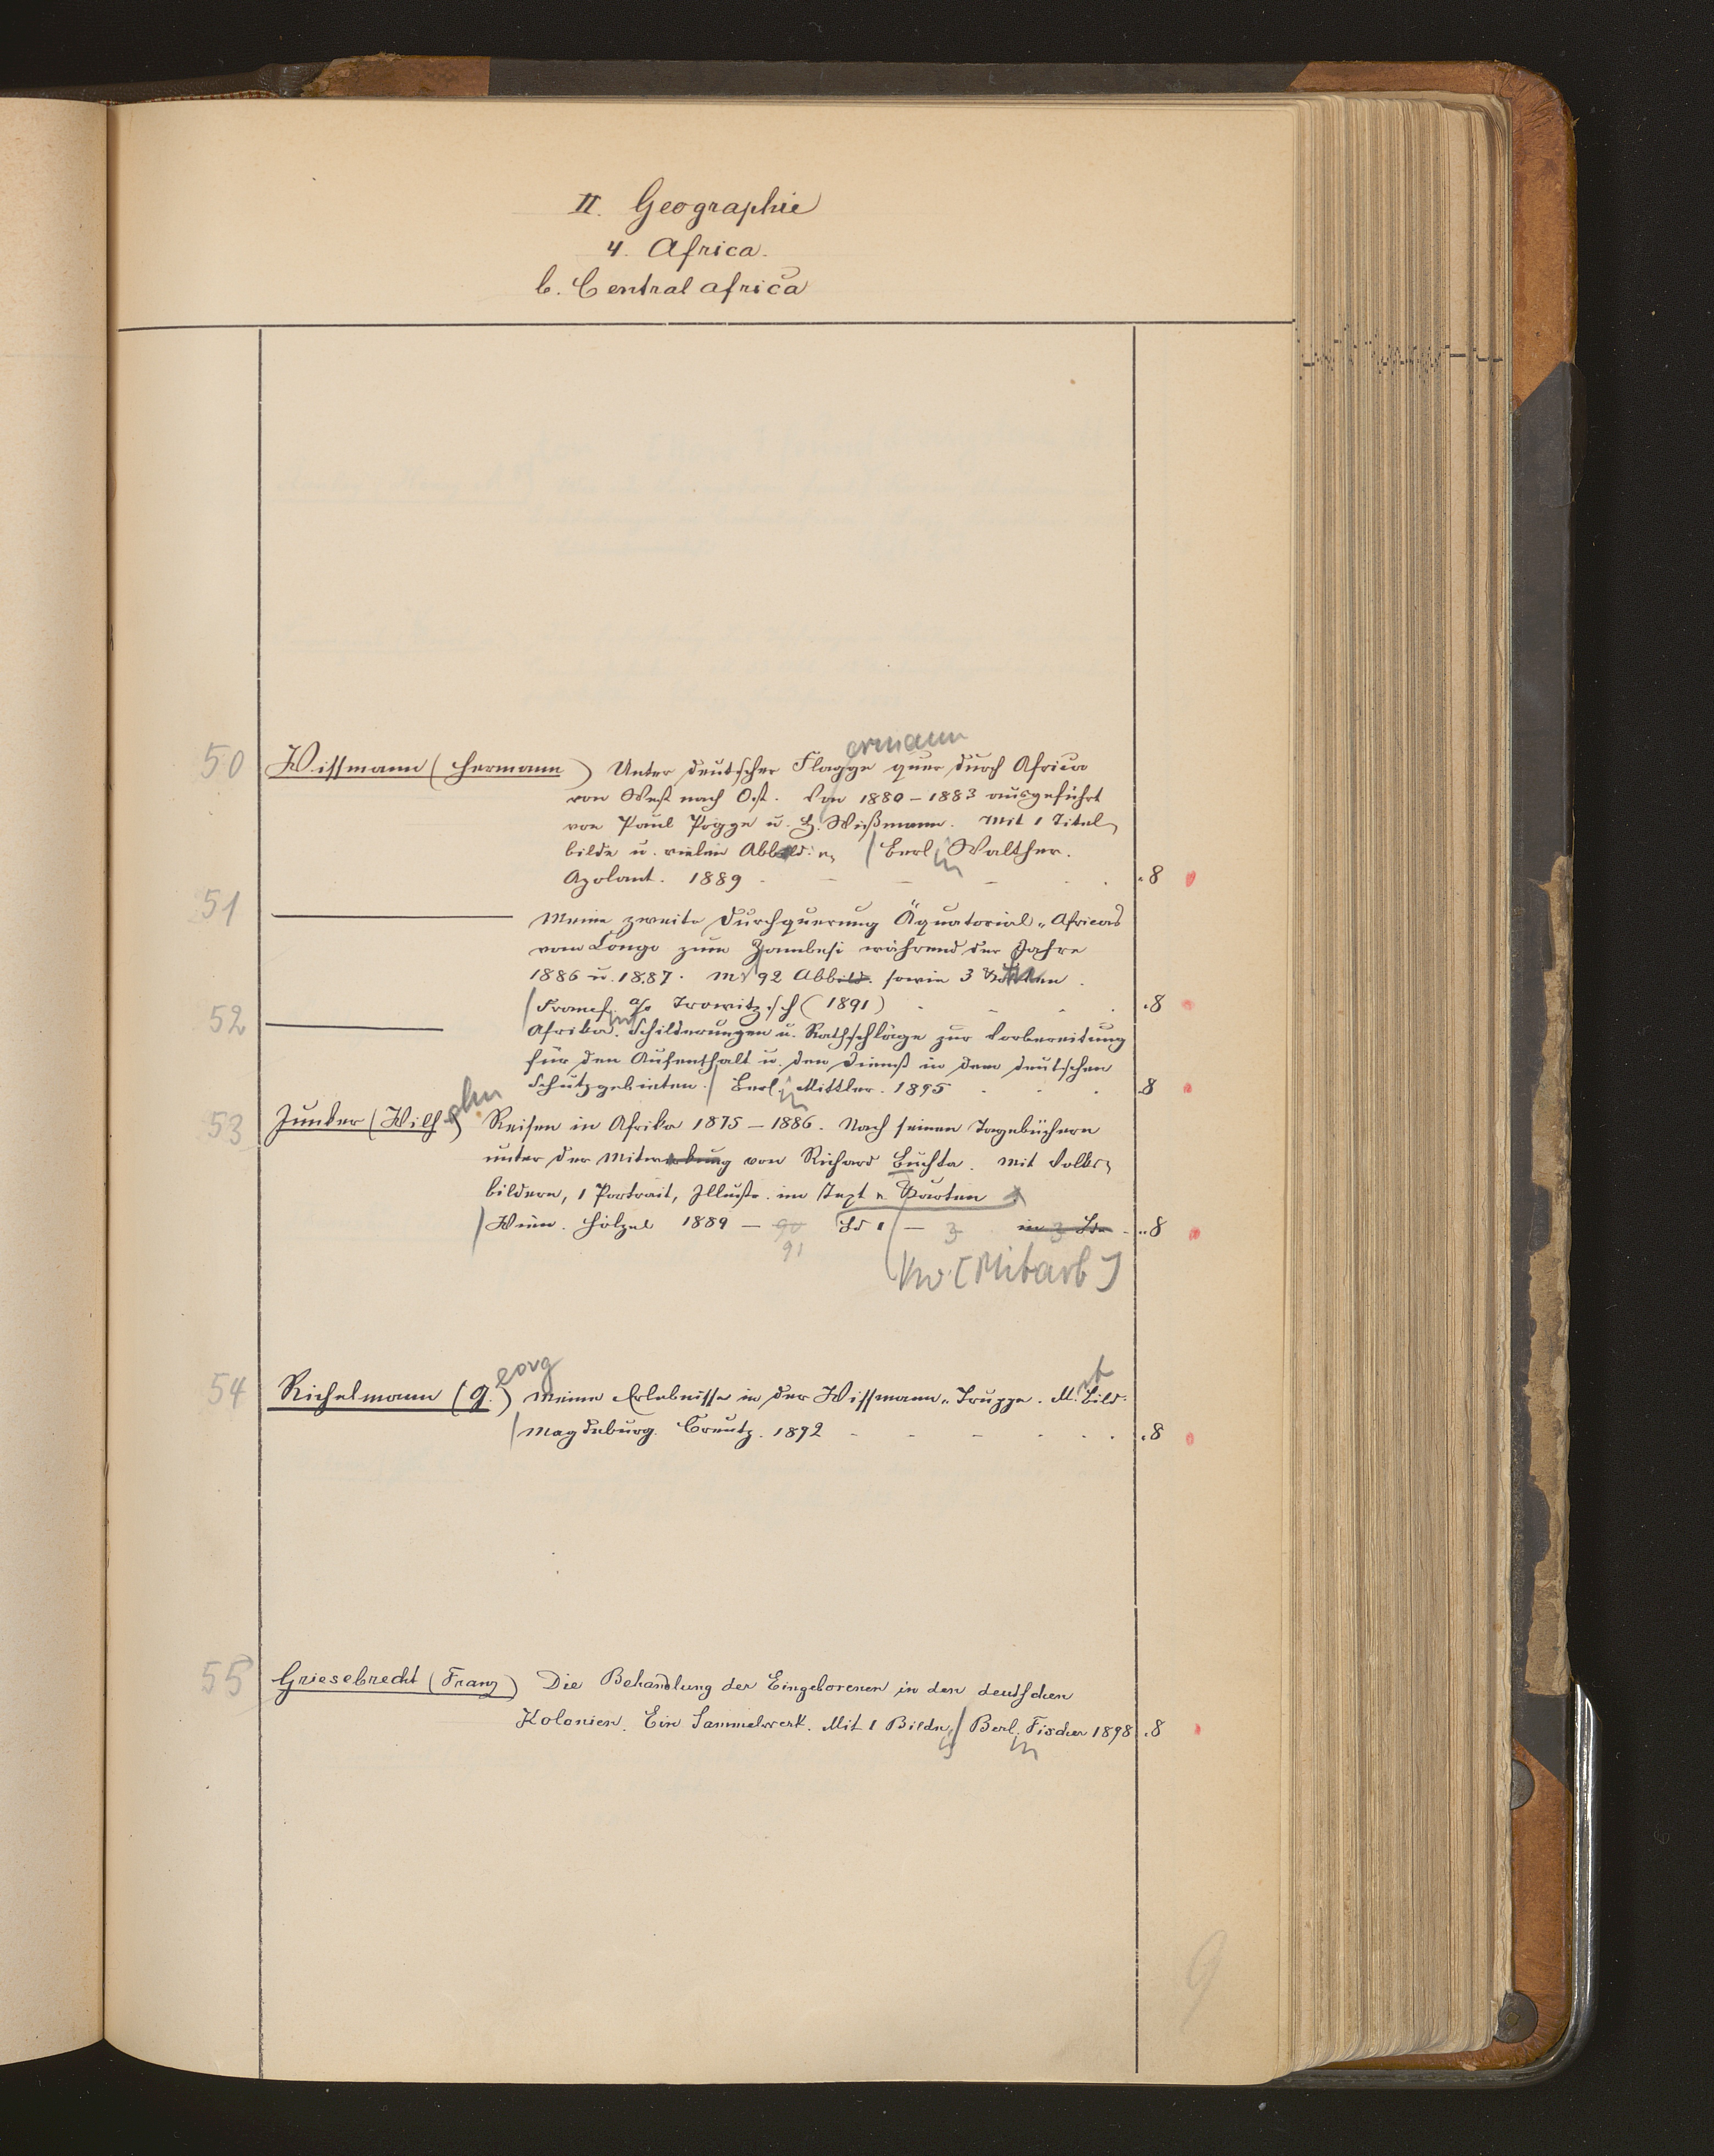 II. Geographie
4. Africa.
b. Centralafrica
50 Wissmann (Hermann) Unter deutscher Flagge quer durch Africa
ermann
von West nach Ost. Von 1880–1883 ausgeführt
von Paul Pogge u. H. Wißmann. Mit 1 Titel-
bilde u. vielen Abbild: / Berlin Walther.
Apolant. 1889 .8
51 ——— Meine zweite Durchquerung Äquatorial-Africas
vom Congo zum Zambesi während der Jahre
1886 u. 1887. M. 92 Abbild. sowie 3 Karten.
/ Frankf. a/o Trowitzsch (1891) .8
52 ——— Afrika. Schilderungen u. Rathschläge zur Vorbereitung
für den Aufenthalt u. den Dienst in den deutschen
Schutzgebieten. / Berlin Mittler. 1895 8
53 Junker (Wilhelm) Reisen in Afrika 1875–1886. Nach seinen Tagebüchern
unter der Mitwirkung von Richard Buchta. Mit Vollbil-
bildern, 1 Portrait, Illustr. im Text u. Karten
/ Wien. Hölzel 1889 – 90 Bd 1 – 3 in 3 Bde .8
91
Vw. [Mitarb]
54 Richelmann (G.) Meine Erlebnisse in der Wissmann-Truppe. M. Bild.
eorg
it
/ Magdeburg. Creutz. 1892 .8
55 Griesebrecht (Franz) Die Behandlung der Eingeborenen in den deutschen
Kolonien. Ein Sammelwerk. Mit 1 Bildn. / Berlin Fischer 1898 .8
9